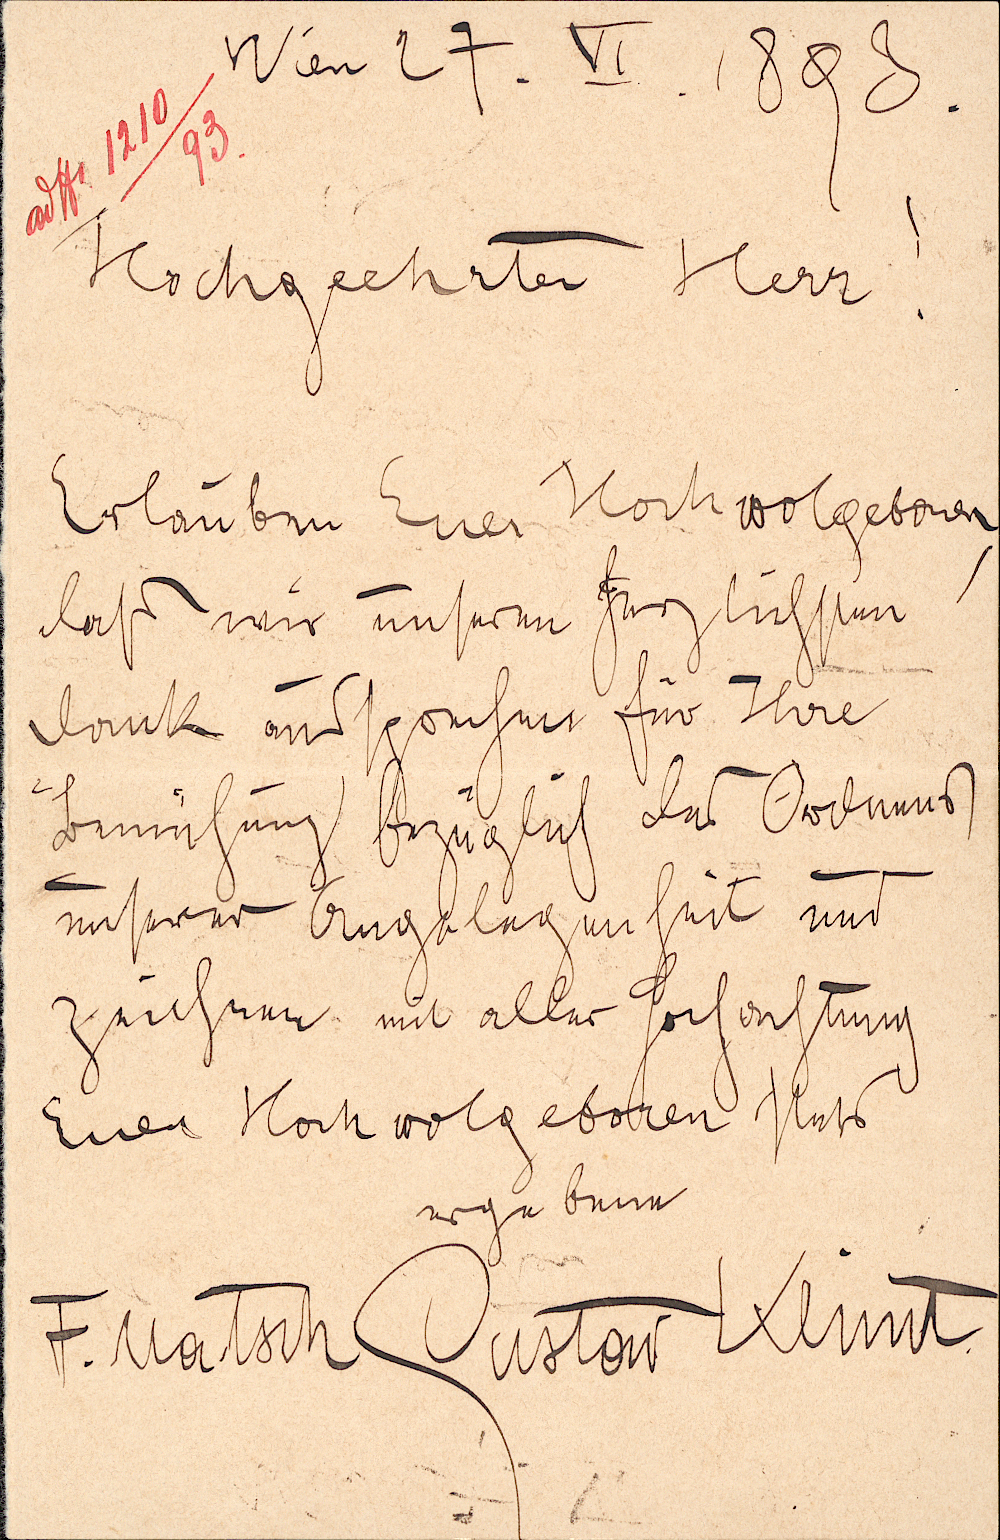 Wien 27. VI. 1893.
ad No 1210/93.
Hochgeehrter Herr!
Erlauben Euer Hochwolgeboren
daß wir unseren herzlichsten
Dank aussprechen für Ihre
Bemühung bezüglich des Ordnens
unserer Angelegenheit und
zeichnen mit aller Hochachtung
Euer Hochwolgeboren stets
ergebene
F. Matsch Gustav Klimt.